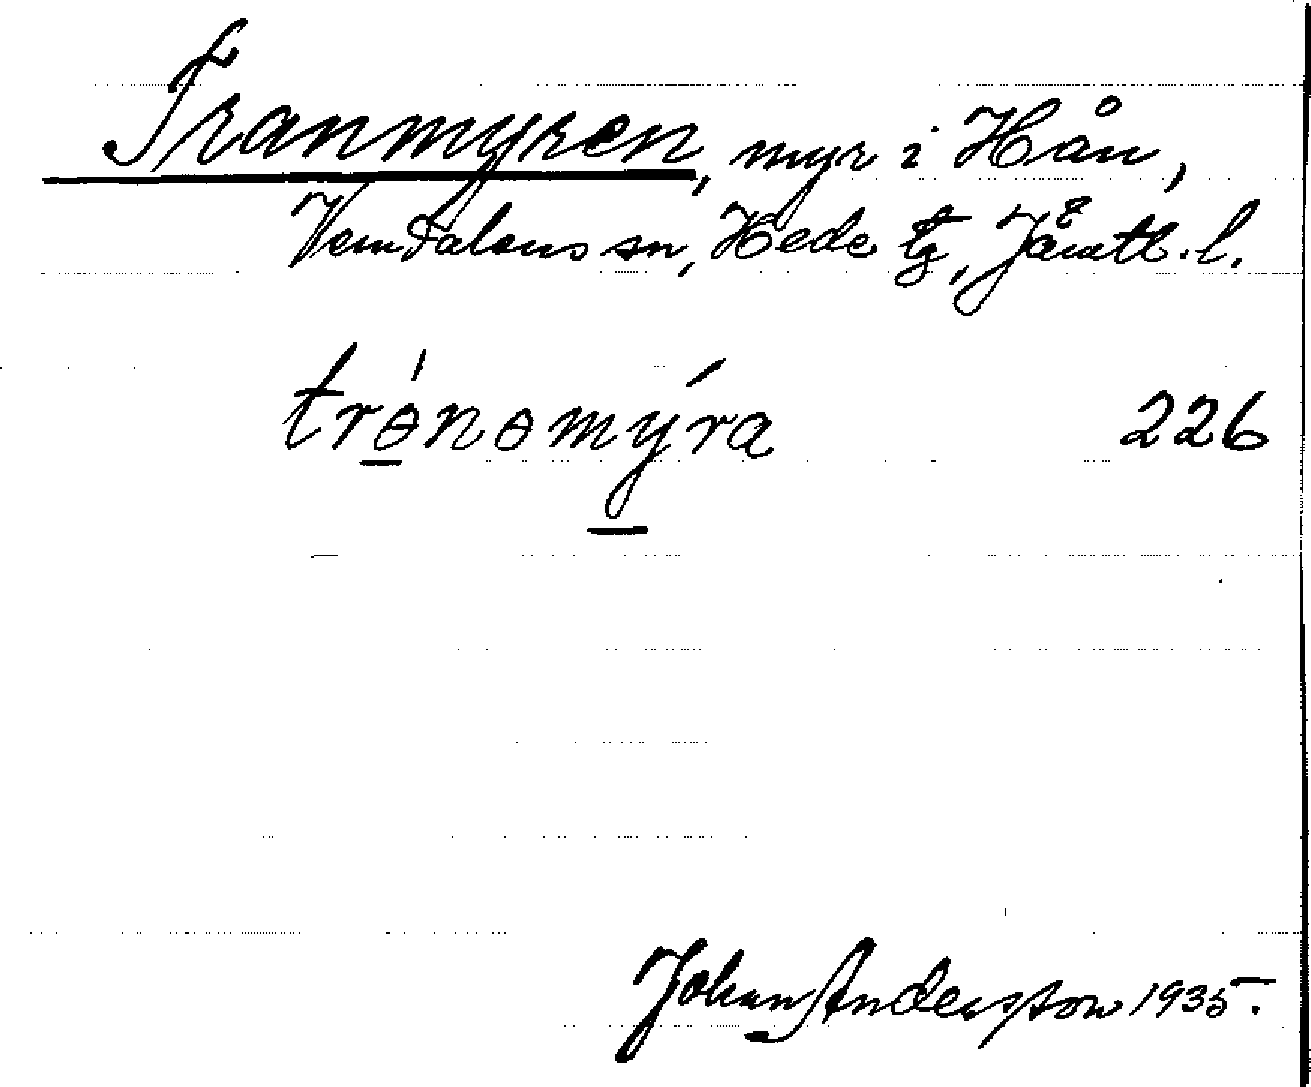 Tranmyren, myr i Hån,
Vemdalens sn, Hede tg, Jämtl. l.
trө̱́nөmý̱ra 226
Johan Andersson 1935.